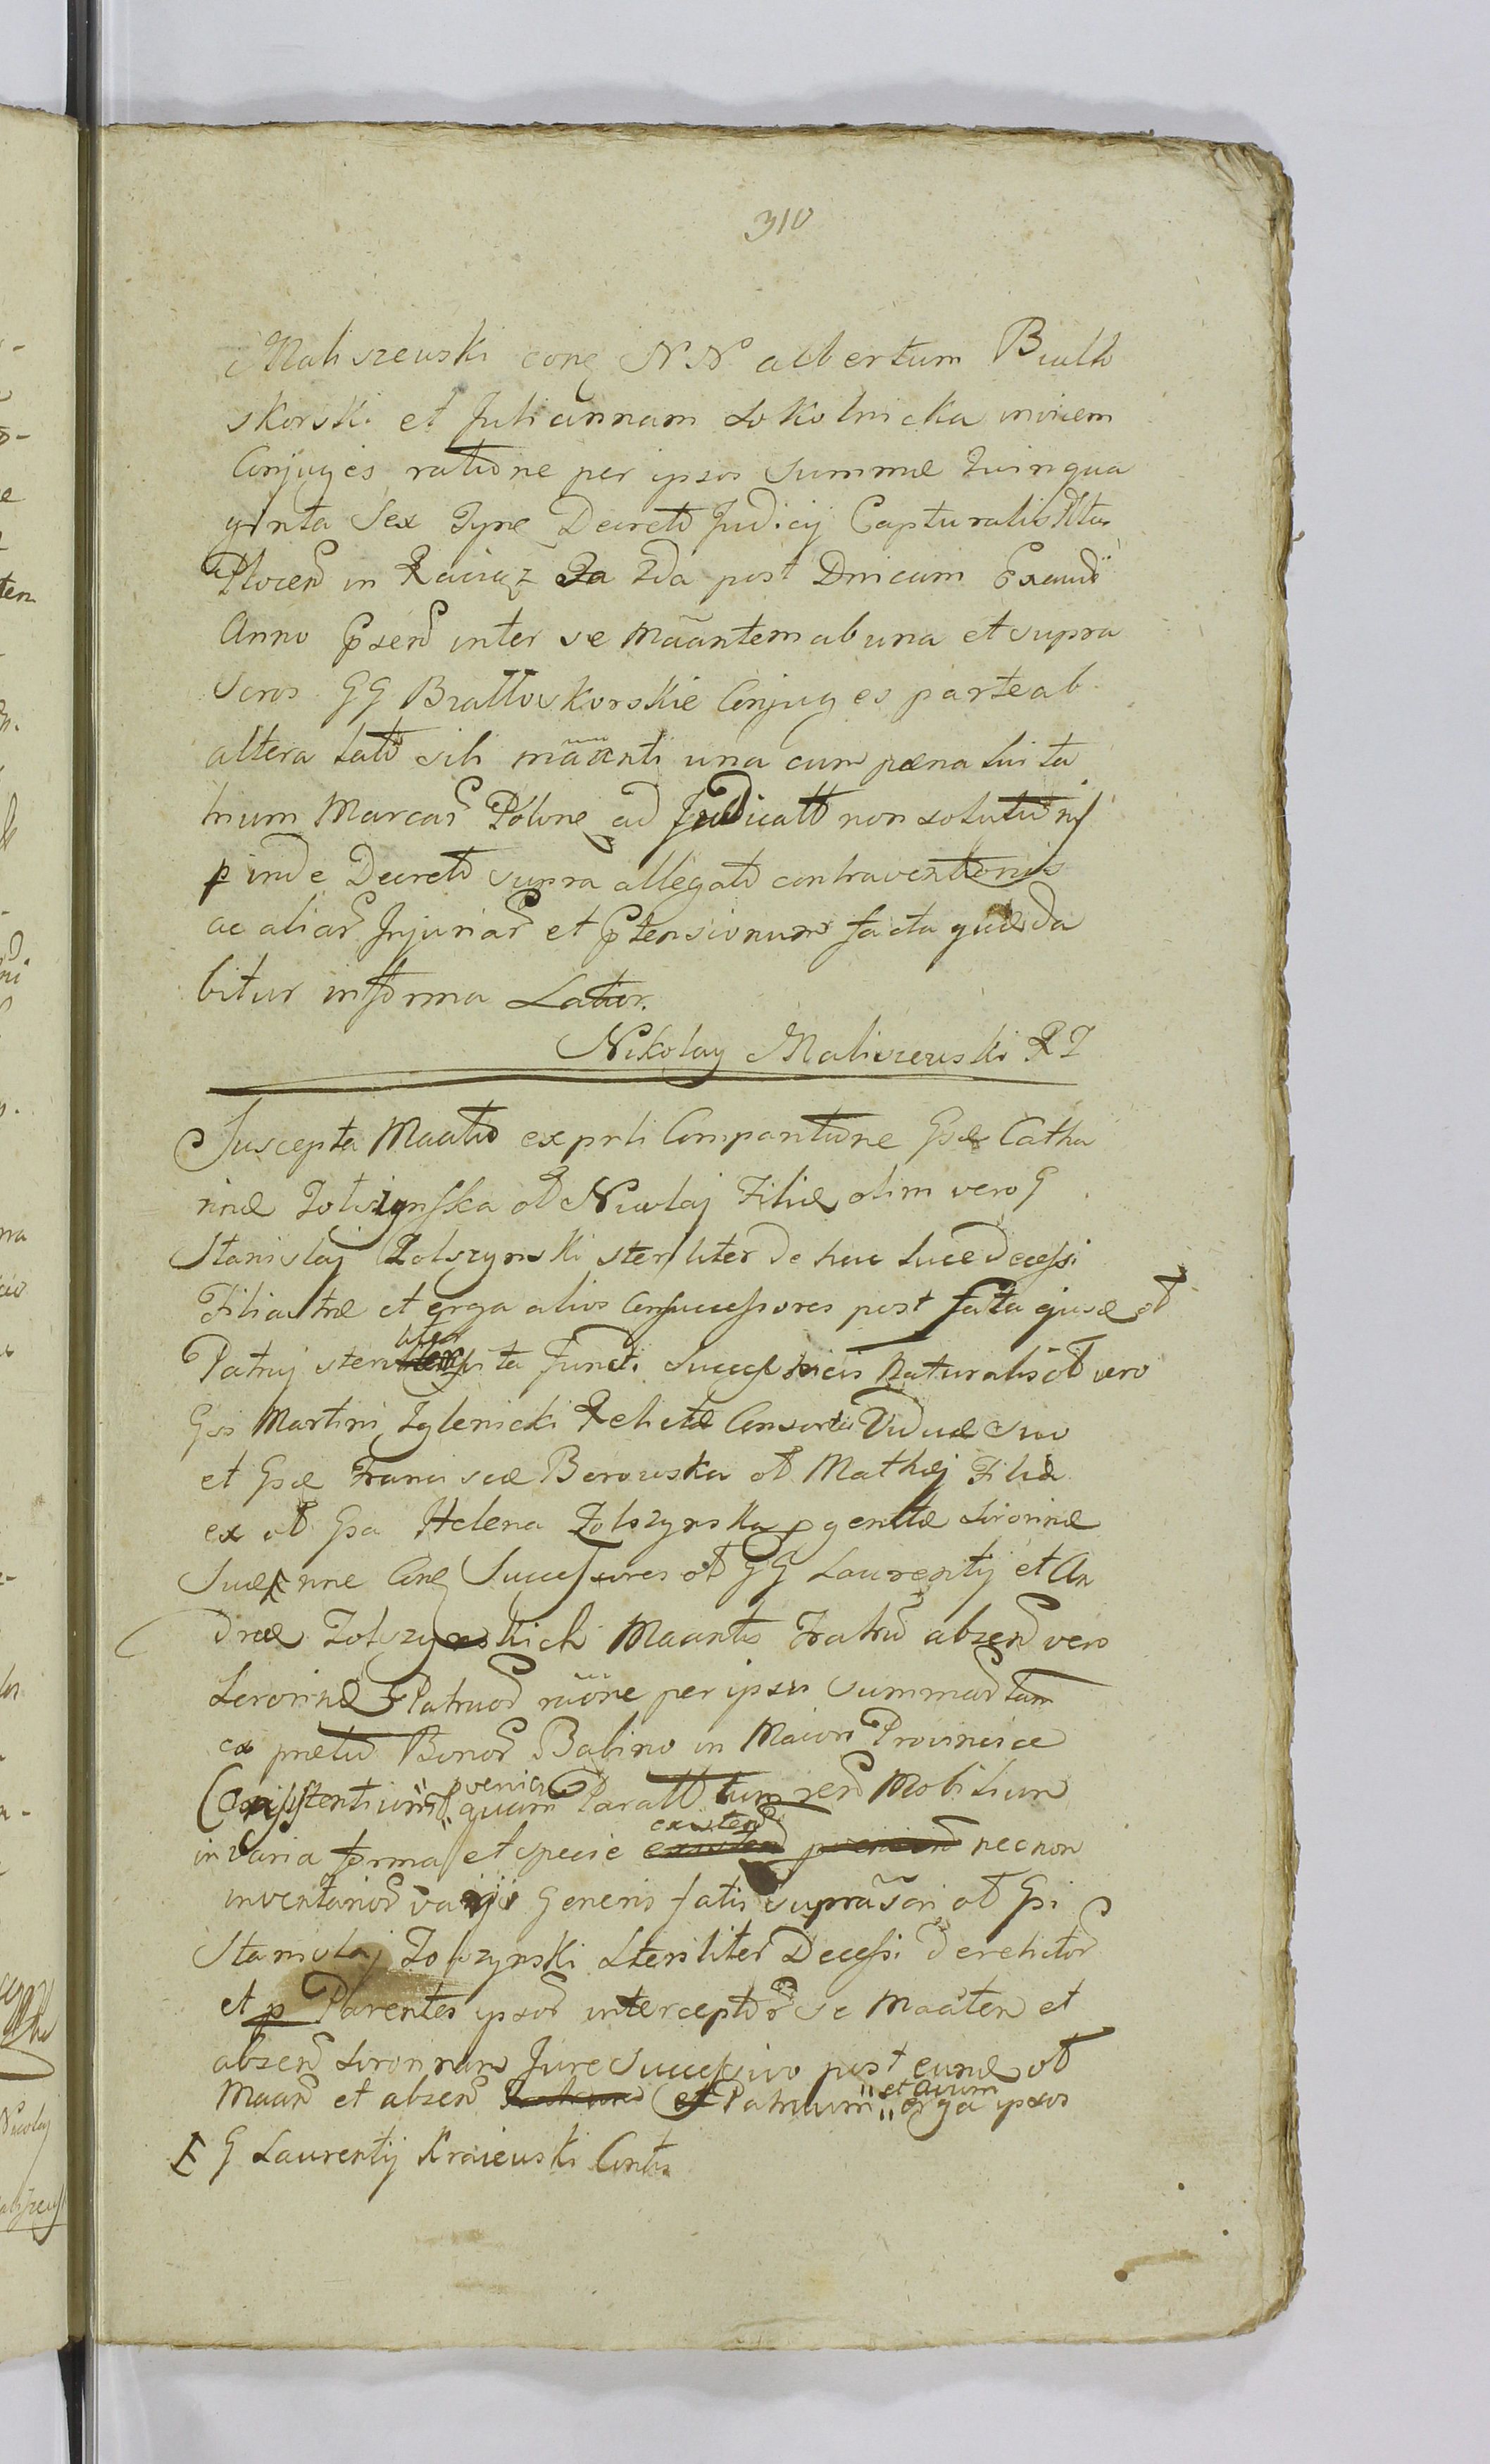 310
Maliszewski conq NN albertum Biallo
skorski et Juliannam Sokolnicka invicem
Conjuges ratione per ipsos Summæ Quinqua
ginta Sex Tynf Decreto Judicij Capturalis Pltus
Plocen in Raciąz 2da post Dnicam Exaudi
Anno Psen inter se Maantem ab una et supra
Scros GG Biallloskorskie Conjuges parte ab
altera Lato sibi maanti una cum pæna lui ta
lium Marcar Polone ad Judicatt non solution
p inde Decreto supra allegato contraventionis
ac aliar Injuriar et Ptensionum facta quæ da
bitur in forma Lator.
Nikolay Maliszewski RJ
Suscepta Maatio ex prti Comparitione Gsæ Catha
rinæ Zolszynska ol Nicolaj Filiæ olim vero G
Stanislaj Zolszynski steriliter de hac luce decessi
Filiastræ et erga alios Consuccessores post fata ejusd ol
Patruj steri liter ta functi Successricis Naturalis ol vero
Gsi Martini Zglenicki Relictæ Consortis Viduæ suo
et Gsæ Franciscæ Borowska ol Mathæj Filiæ
ex ol Gsa Helena Zolszynska pgenitæ Sororinæ
Suæ nne Conq Successores ol GG Laurentij et An
dreæ Zolszynskich Maantis Fratru absen vero
Sororinæ Patruor raone per ipsos Summar tam
ex pretio Bonor Babino in Maiori Provincia
Consistentium quam Paratt tum rerum Mobilium
existen
in varia forma et specie necnon
inventarior varij Generis fatis supra Scri ol Gsi
Stanislaj Zolszynski Steriliter Decessi derelictor
et p Parentes ipsor interceptor se Maaten et
absen Sororinam Jure Successivo post eund ol
Maan et absen Patruum et avum erga ipsos
G Laurentij Kraiewski Contis